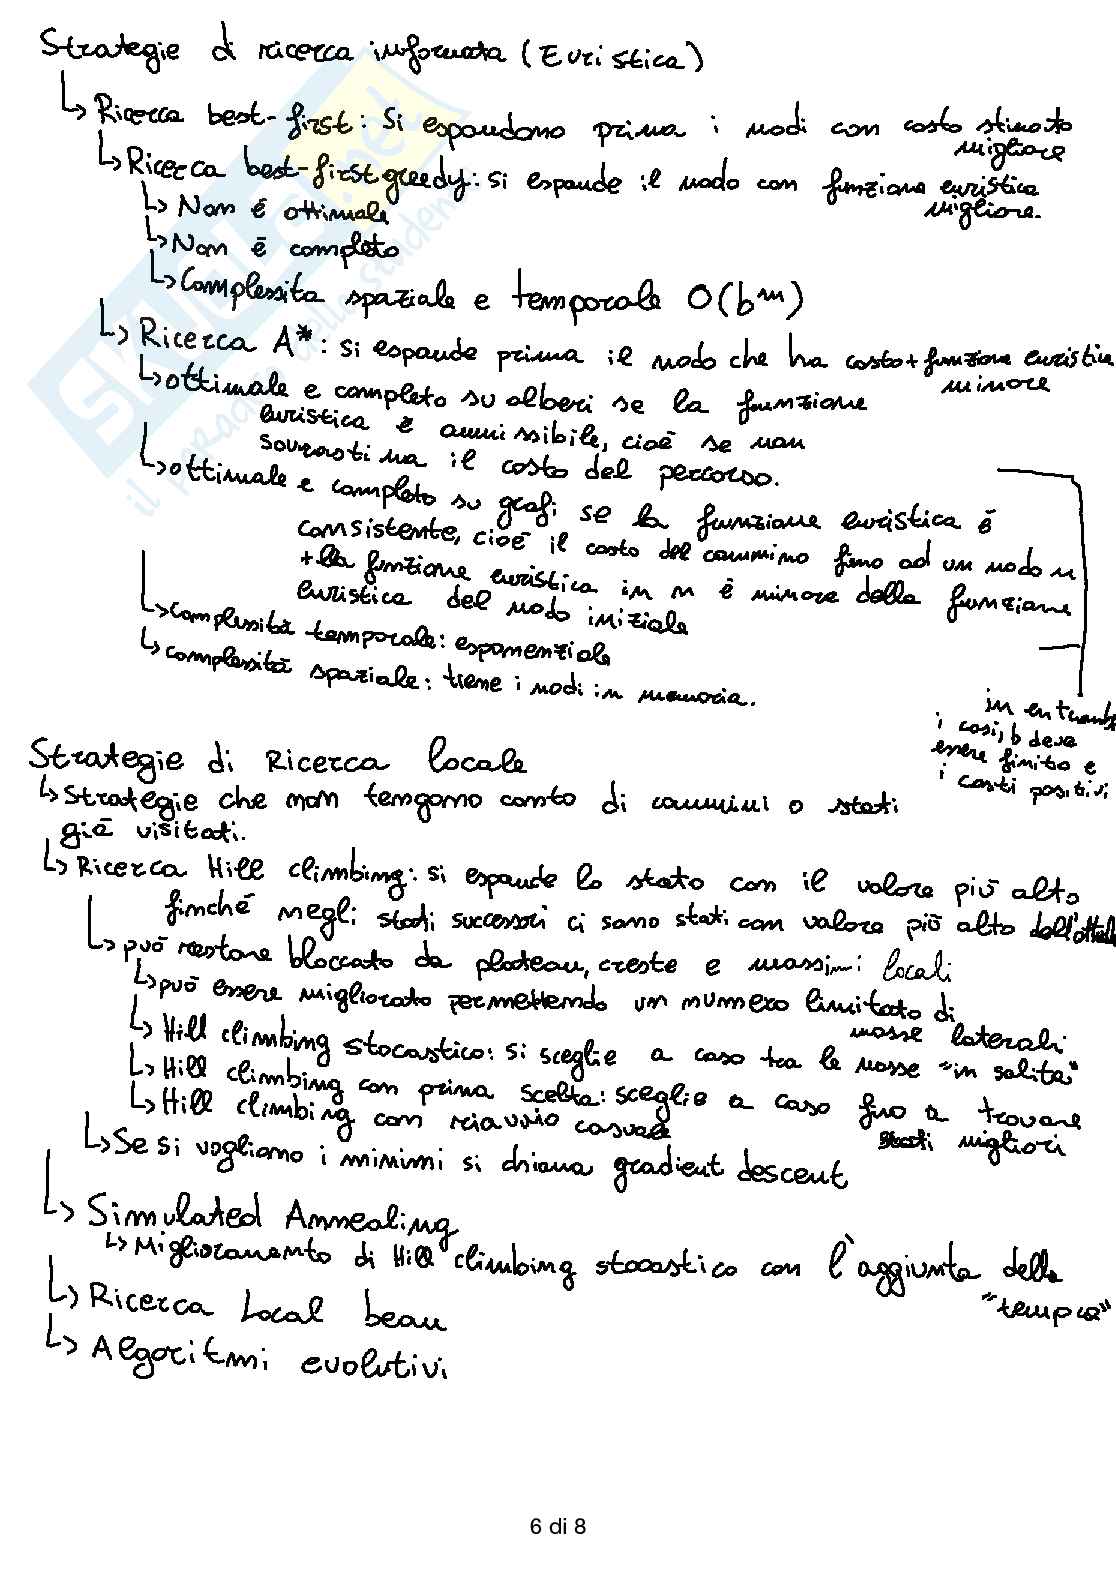 Strategie di ricerca informata (Euristica)
↳ Ricerca best-first: Si espandono prima i nodi con costo stimato
migliore
↳ Ricerca best-first greedy: si espande il nodo con funzione euristica
migliore.
↳ Non è ottimale
↳ Non è completo
↳ Complessita spaziale e temporale O(b^m)
↳ Ricerca A*: si espande prima il nodo che ha costo + funzione euristica
minore
↳ ottimale e completo su alberi se la funzione
euristica è ammissibile, cioè se non
sovrastima il costo del percorso.
↳ ottimale e completo su grafi se la funzione euristica è
consistente, cioè il costo del cammino fino ad un nodo n
+ la funzione euristica in n è minore della funzione
euristica del nodo iniziale
↳ complessità temporale: esponenziale
↳ complessità spaziale: tiene i nodi in memoria.
in entrambi
i casi, b deve
essere finito e
i costi positivi
Strategie di Ricerca locale
↳ Strategie che non tengono conto di cammini o stati
già visitati.
↳ Ricerca Hill climbing: si espande lo stato con il valore più alto
finché negli stati successori ci sono stati con valore più alto dell'attuale
↳ può restare bloccato da plateau, creste e massimi locali
↳ può essere migliorato permettendo un numero limitato di
mosse laterali
↳ Hill climbing stocastico: si sceglie a caso tra le mosse "in salita"
↳ Hill climbing con prima scelta: sceglie a caso fino a trovare
stati migliori
↳ Hill climbing con riavvio casuale
↳ Se si vogliono i minimi si chiama gradient descent
↳ Simulated Annealing
↳ Miglioramento di Hill climbing stocastico con l'aggiunta della
"tempra"
↳ Ricerca Local beam
↳ Algoritmi evolutivi
6 di 8